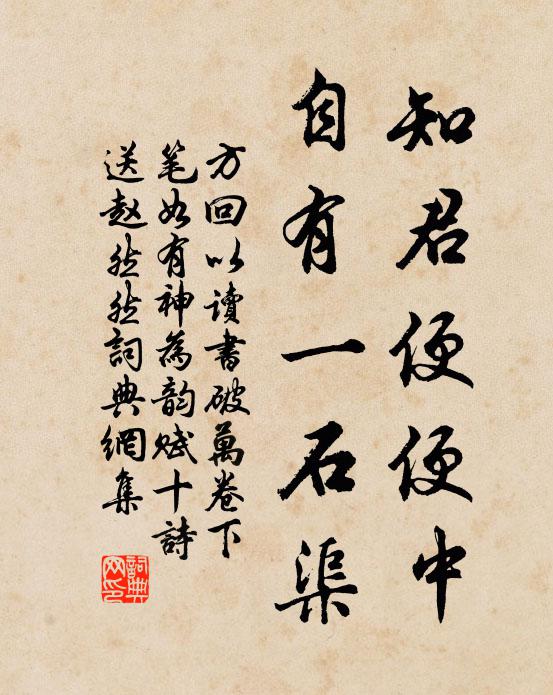 知君便便中
自有一石渠
方回以讀書破萬卷下
笔如有神為韵赋十詩
送赵然然詞典網集
詞典网印